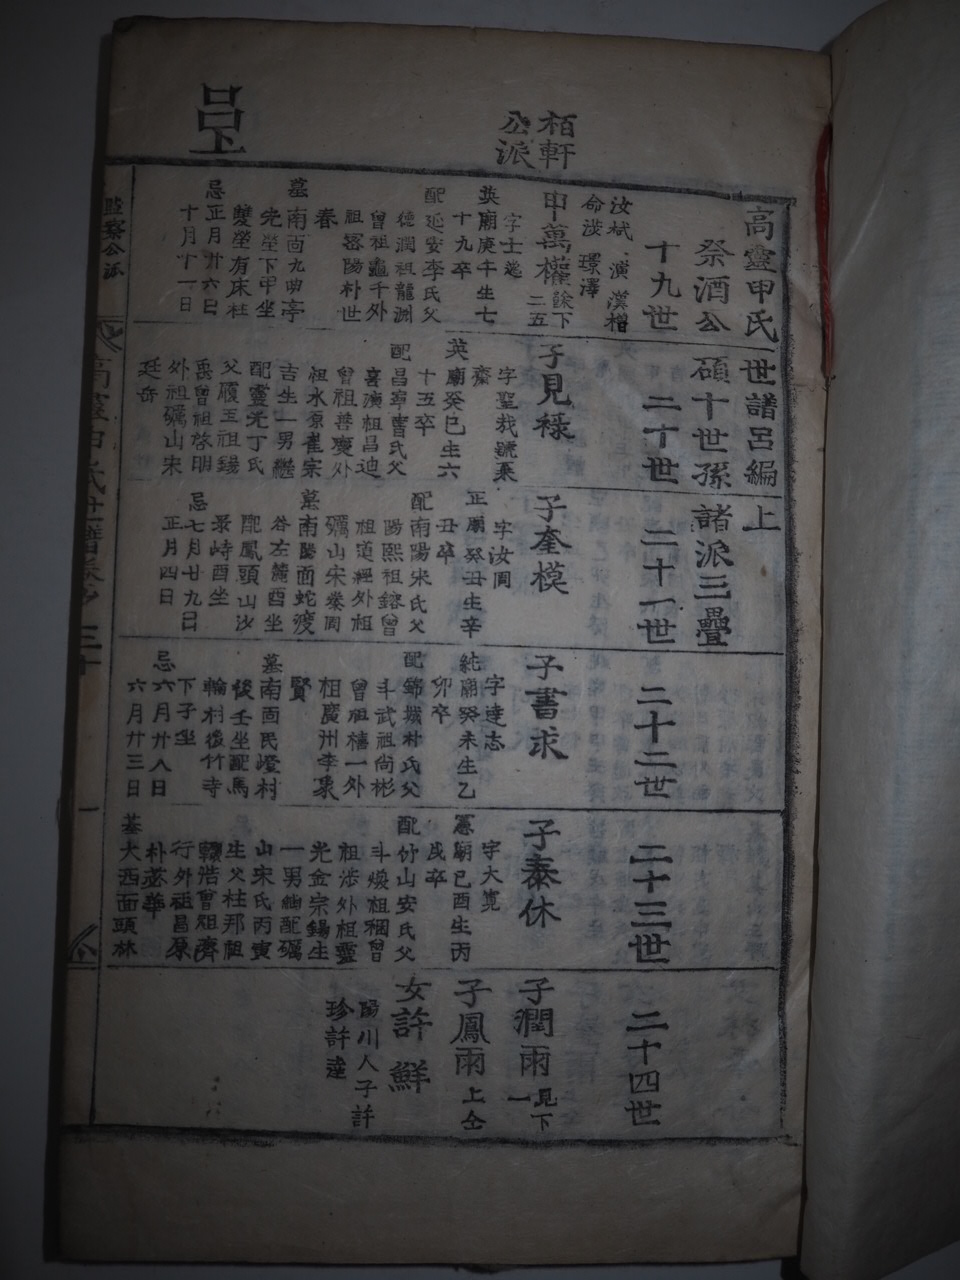 呂下
栢軒
公派
高靈申氏世譜呂編上
祭酒公碩十世孫諸派三疊
十九世
汝栻 演 漢楷
命浚 璟澤
申萬權 餘下二五
字士
英廟庚午生七
十九卒
配延安李氏父
德潤祖龍淵
曾祖 千外
祖密陽朴世
春
墓南面九曲亭
先塋下甲坐
雙塋有床柱
忌正月廿六日
十月十一日
二十世
子見祿
字聖哉號
齋
英廟癸巳生六
十五卒
配昌寧曺氏父
喜演祖昌迪
曾祖善慶外
祖水原崔宗
吉生一男繼
配靈光丁氏
父履玉祖錫
禹曾祖啓明
外祖礪山宋
廷岳
二十一世
子奎模
字汝周
正廟癸丑生辛
丑卒
配南陽宋氏父
陽熙祖鎔曾
祖道經外祖
礪山宋 周
墓南陽面蛇渡
谷左麓酉坐
配鳳頭山沙
峙酉坐
忌七月廿九日
正月四日
二十二世
子書求
字達志
純廟癸未生乙
卯卒
配錦城朴氏父
斗武祖尚彬
曾祖櫄一外
祖廣州李
賢
墓南面民燈村
後壬坐配馬
輪村後竹寺
下子坐
忌六月廿八日
六月廿三日
二十三世
子泰休
字大寬
憲廟己酉生丙
戌卒
配竹山安氏父
斗煥祖稛曾
祖浩外祖靈
光金宗錫生
一男 配礪
山宋氏丙寅
生父柱邦祖
浩曾祖濟
行外祖昌原
朴 華
墓大西面頭林
二十四世
子潤雨 見下一
子鳳雨 上仝
女許 鮮
陽川人子許
珍許達
監察公派
高靈申氏世譜卷之三十
一